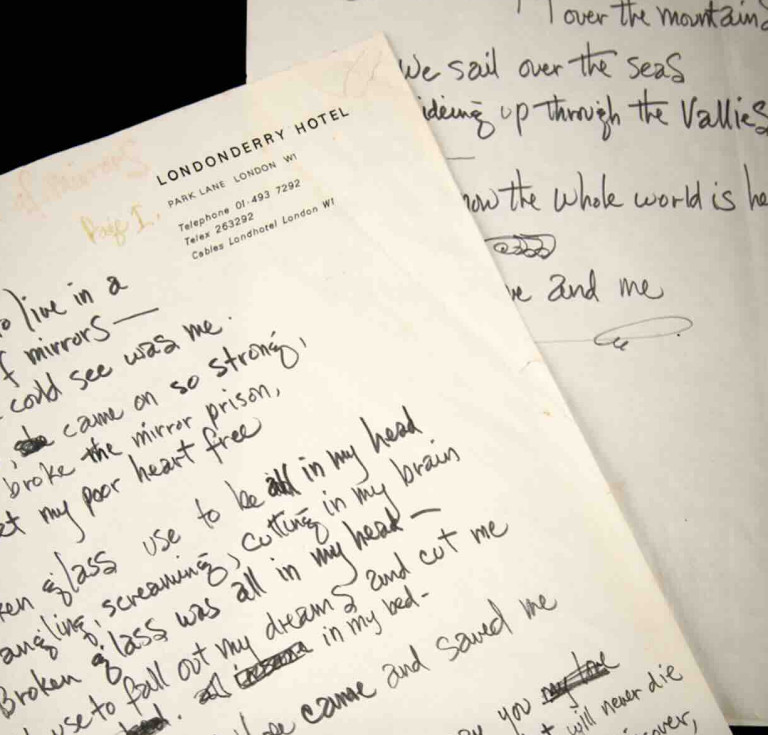 over the mountains
We sail over the seas
ideing up through the Vallies
now the whole world is he
and me
of mirrors
Page I.
LONDONDERRY HOTEL
PARK LANE LONDON W1
Telephone 01-493 7292
Telex 263292
Cables Londhotel London W1
o live in a
f mirrors —
could see was me.
came on so strong,
broke the mirror prison,
et my poor heart free
ken glass use to be all in my head
angling, screaming, cutting in my brain
Broken glass was all in my head —
use to fall out my dreams and cut me
all in my bed-
came and saved me
you my love
will never die